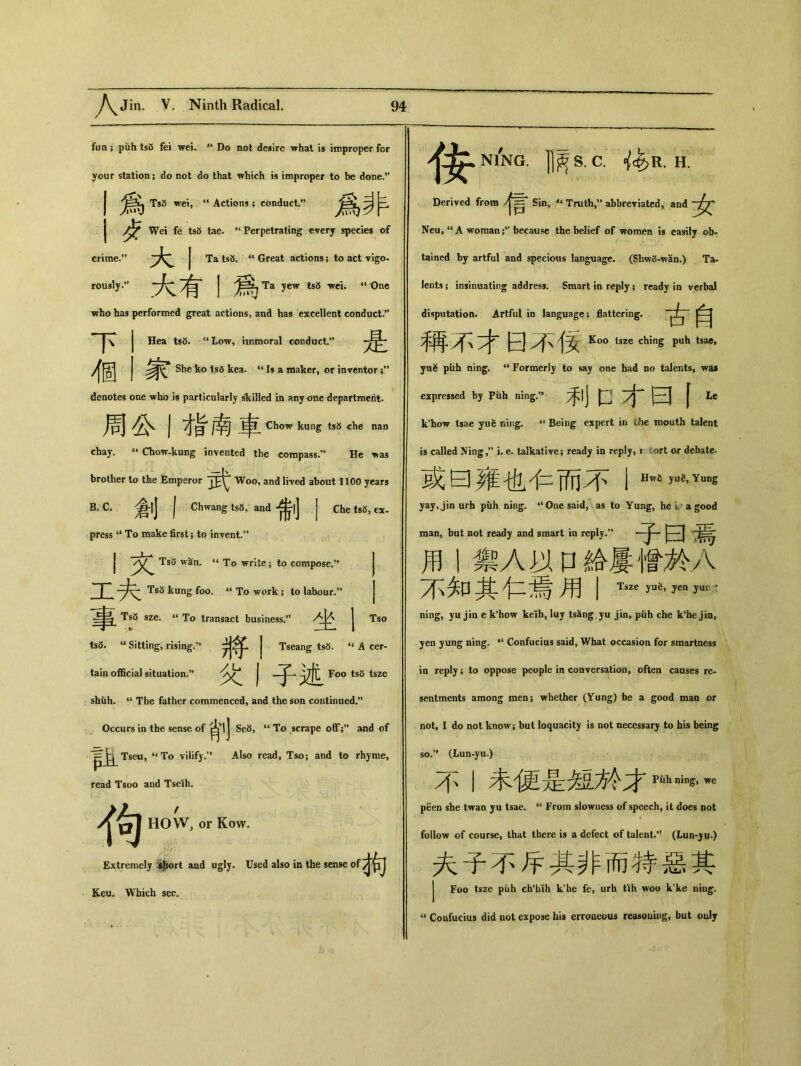 人 Jin. V. Ninth Radical. 94
fun ; pŭh tsŏ fei wei. “ Do not desire what is improper for
your station ; do not do that which is improper to be done.”
| 爲 Tsŏ wei, “ Actions ; conduct.” 爲非
| 歹 Wei fe tsŏ tae. “ Perpetrating every species of
crime.” 大 | Ta tsŏ. “ Great actions ; to act vigo-
rously.” 大有 | 爲 Ta yew tsŏ wei. “ One
who has performed great actions, and has excellent conduct.”
下 | Hea tsŏ. “ Low, immoral conduct.” 是
個 | 家 She ko tsŏ kea. “ Is a maker, or inventor ;”
denotes one who is particularly skilled in any one department.
周公 | 指南車 Chow kung tsŏ che nan
chay. “ Chow-kung invented the compass.” He was
brother to the Emperor 武 Woo, and lived about 1100 years
B. C. 創 | Chwang tsŏ, and 制 | Che tsŏ, ex-
press “ To make first ; to invent.”
| 文 Tsŏ wăn. “ To write ; to compose.” |
工夫 Tsŏ kung foo. “ To work ; to labour.” |
事 Tsŏ sze. “ To transact business.” 坐 | Tso
tsŏ. “ Sitting, rising.” 將 | Tseang tsŏ. “ A cer-
tain official situation.” 父 | 子述 Foo tsŏ tsze
shŭh. “ The father commenced, and the son continued.”
Occurs in the sense of 削 Seŏ, “ To scrape off ;” and of
詛 Tseu, “ To vilify.” Also read, Tso ; and to rhyme,
read Tsoo and Tseĭh.
佝 HOW, or Kow.
Extremely short and ugly. Used also in the sense of 拘
Keu. Which see.
佞 NÍNG. S. C. R. H.
Derived from 信 Sin, “ Truth,” abbreviated, and 女
Neu, “ A woman ;” because the belief of women is easily ob-
tained by artful and specious language. (Shwŏ-wăn.) Ta-
lents ; insinuating address. Smart in reply ; ready in verbal
disputation. Artful in language ; flattering. 古自
稱不才曰不佞 Koo tsze ching puh tsae,
yuĕ pŭh ning. “ Formerly to say one had no talents, was
expressed by Pŭh ning.” 利口才曰 | Le
k'how tsae yuĕ ning. “ Being expert in the mouth talent
is called Ning,” i. e. talkative ; ready in reply, retort or debate.
或曰雍也仁而不 | Hwŏ yuĕ, Yung
yay, jin urh pŭh ning. “ One said, as to Yung, he is a good
man, but not ready and smart in reply.” 子曰焉
用 | 禦人以口給屢憎於人
不知其仁焉用 | Tsze yuĕ, yen yung
ning, yu jin e k'how keĭh, luy tsăng yu jin, pŭh che k'he jin,
yen yung ning. “ Confucius said, What occasion for smartness
in reply ; to oppose people in conversation, often causes re-
sentments among men ; whether (Yung) be a good man or
not, I do not know ; but loquacity is not necessary to his being
so.” (Lun-yu.)
不 | 未便是短於才 Pŭh ning, we
pëen she twan yu tsae. “ From slowness of speech, it does not
follow of course, that there is a defect of talent.” (Lun-yu.)
夫子不斥其非而特惡其
| Foo tsze pŭh ch'hĭh k'he fe, urh tĭh woo k'ke ning.
“ Confucius did not expose his erroneous reasoning, but only